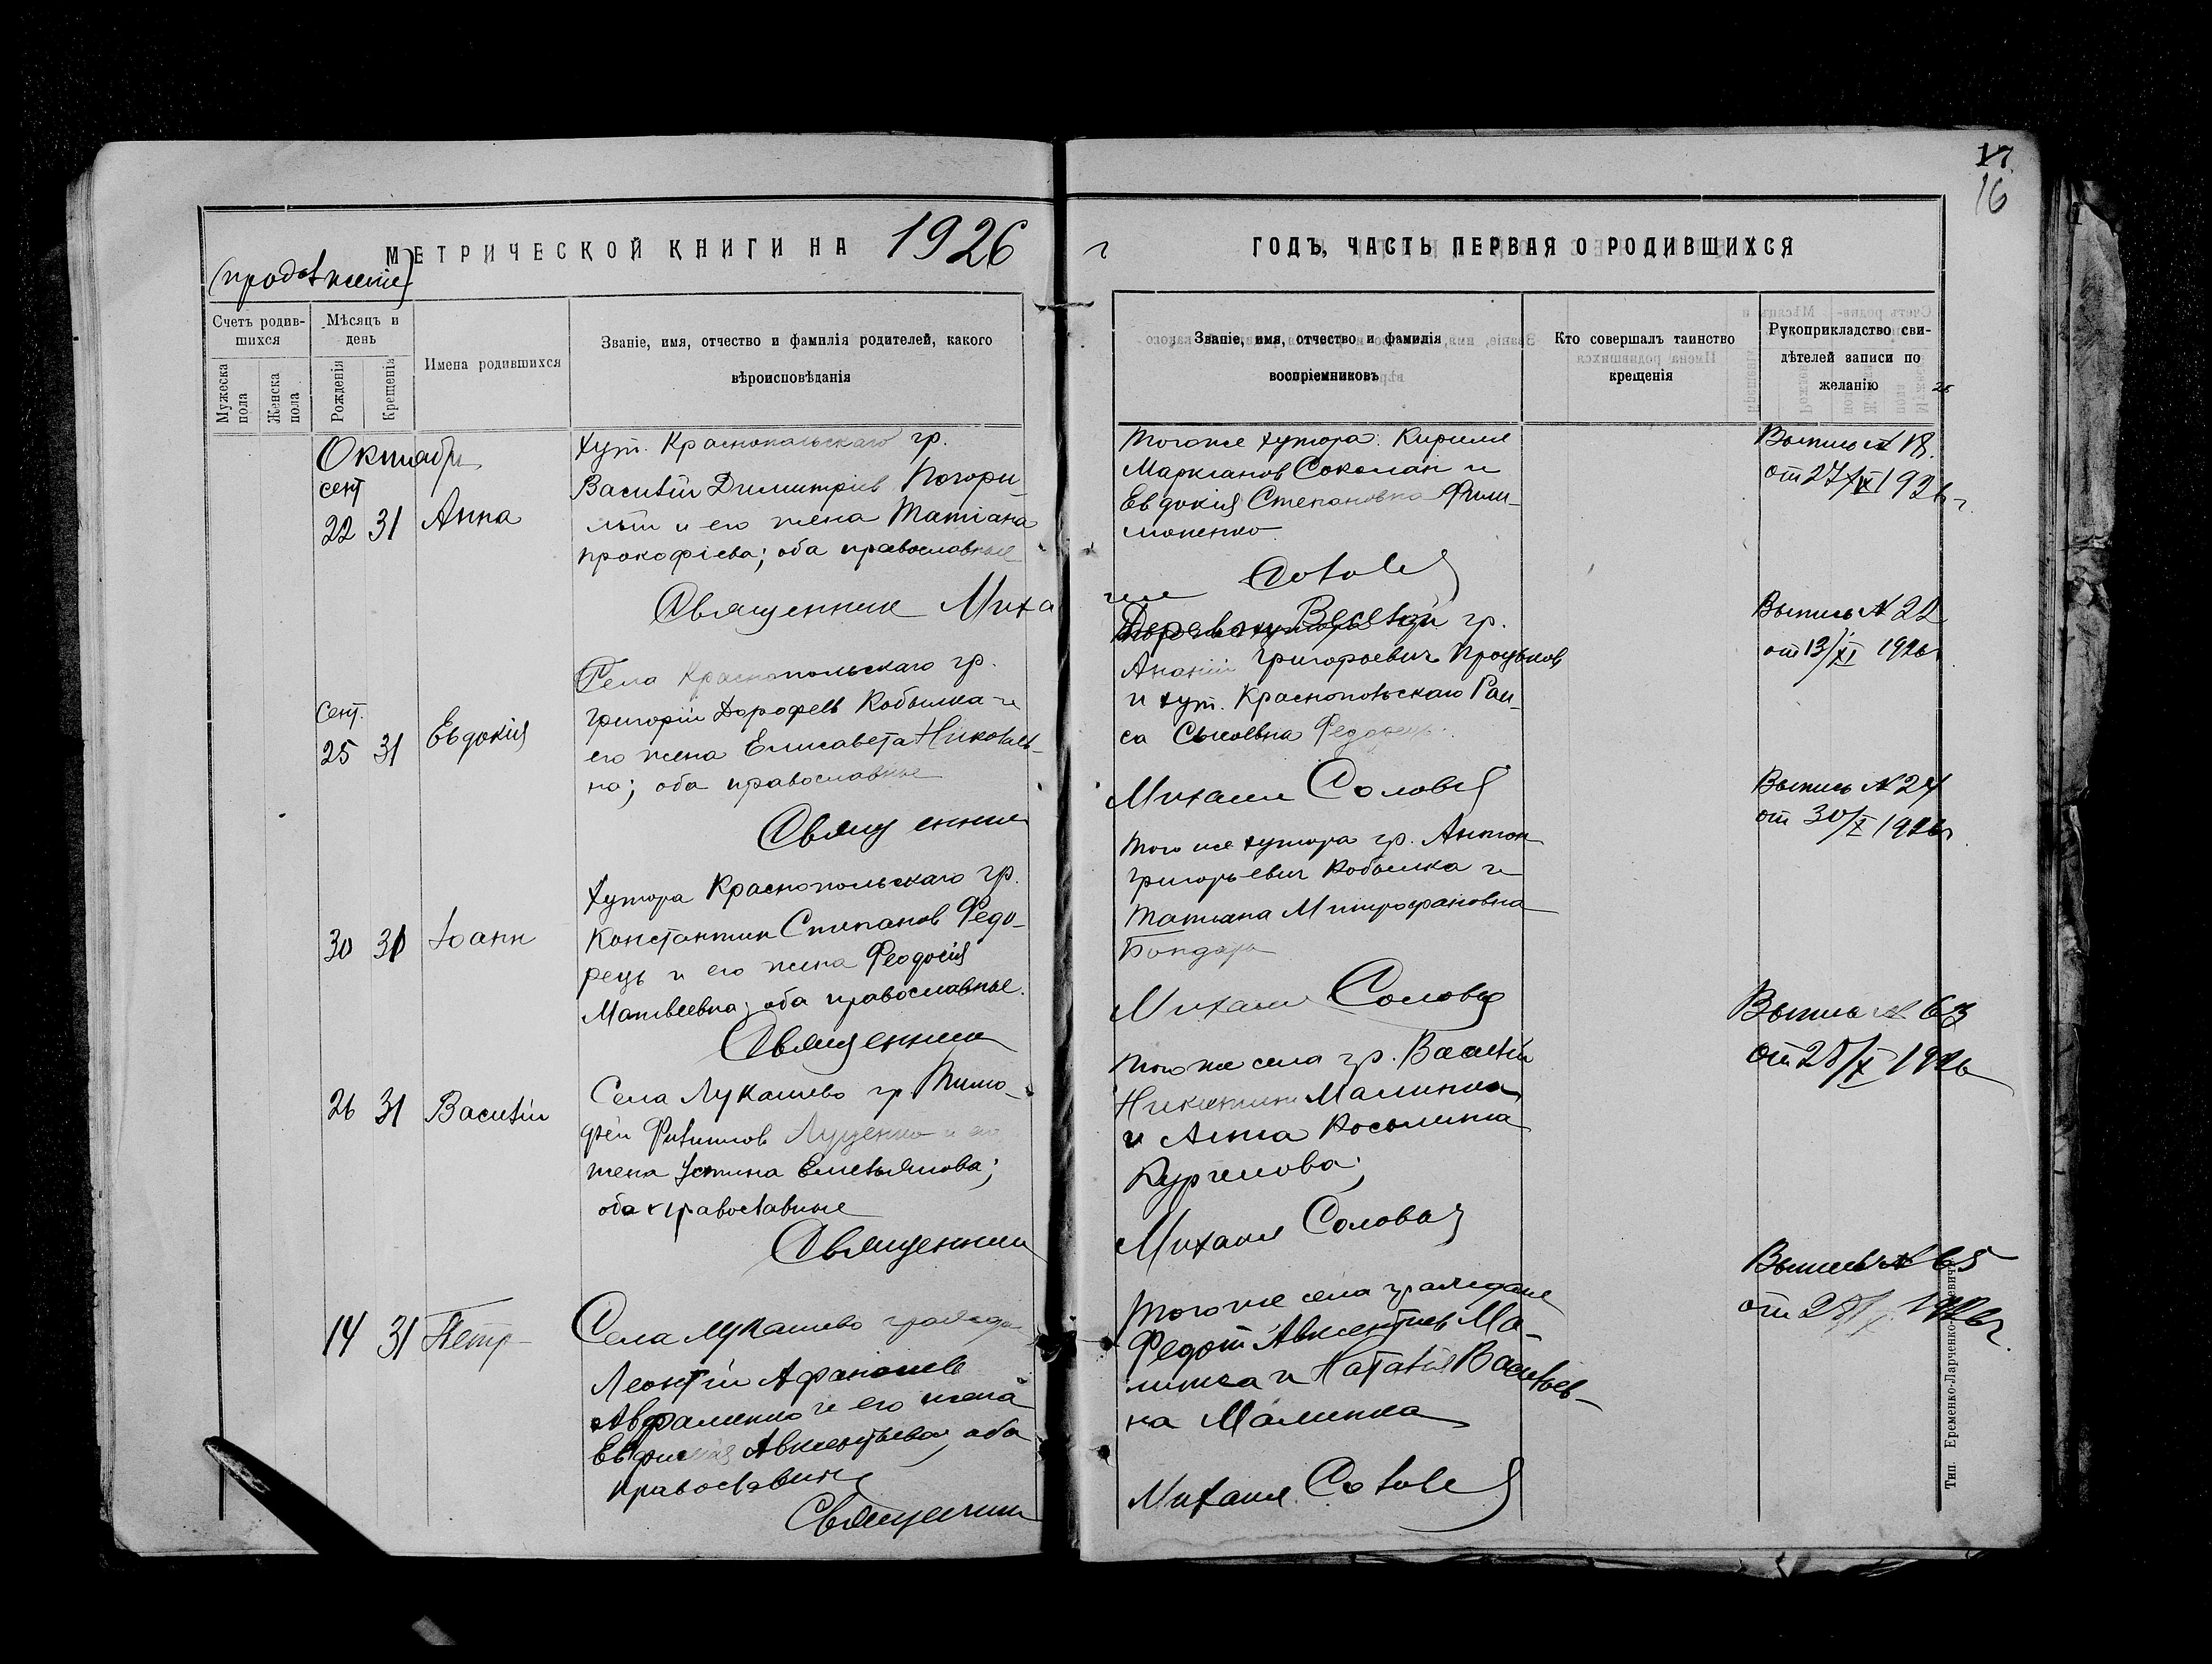 17
16
МЕТРИЧЕСКОЙ КНИГИ НА 1926
г ГОДЪ, ЧАСТЬ ПЕРВАЯ О РОДИВШИХСЯ
(продолжение)
Счетъ родив-
шихся
Мужеска
пола
Женска
пола
Мѣсяцъ и
день
Рожденія
Крещенія
Имена родившихся
Званіе, имя, отчество и фамилія родителей, какого
вѣроисповѣданія
Званіе, имя, отчество и фамилія
воспріемниковъ
Кто совершалъ таинство
крещенія
Рукоприкладство сви-
дѣтелей записи по
желанію
Октябрь
сент
22 31 Анна
Хут. Краснопольскаго гр.
Василій Димитріев Погори-
лый и его жена Татіана
Прокофіева; оба православные
Священник Миха
Тогоже хутора Кирилл
Маркіанов Соколан и
Евдокія Степановна Фили-
моненко
ил Соловей
Выпись № 18.
от 27/XI 1926 г.
сент.
25 31 Евдокія
Села Краснопольскаго гр.
Григорій Дорофеев Кобылка и
его жена Елисавета Николаев-
на; оба православные
Священник
Деревни Веселой гр.
Ананій Григорьевич Процьков
и хут. Краснопольскаго Раи-
са Сысоевна Федорець.
Михаил Соловей
Выпись № 22
от 13/XI 1926 г
30 31 Іоанн
Хутора Краснопольскаго гр.
Константин Степанов Федо-
рець и его жена Феодосія
Матвеевна; оба православные.
Священник
Того же хутора гр. Антон
Григорьевич Кобылка и
Татиана Митрофановна
Бондарь
Михаил Соловей
Выпись № 24
от 30/X 1926 г
26 31 Василій
Села Лукашево гр. Тимо-
фей Филиппов Луценко и его
жена Устина Емельянова;
оба православные
Священник
Того же села гр. Василій
Никитин Малинка
и Анна Косьмина
Кургелова;
Михаил Соловей
Выпись № 63
от 28/X 1926
14 31 Петр
Села Лукашево граждан
Леонтій Афанасьев
Авраменко и его жена
Авксентьева, оба
православны
Священник
Того же села граждане
Федот Авксентьев Ма-
линка и Наталія Василіев-
на Малинка
Михаил Соловей
Выпись № 65
от 28/X 1926 г.
Тип. Еременко-Ларченко-